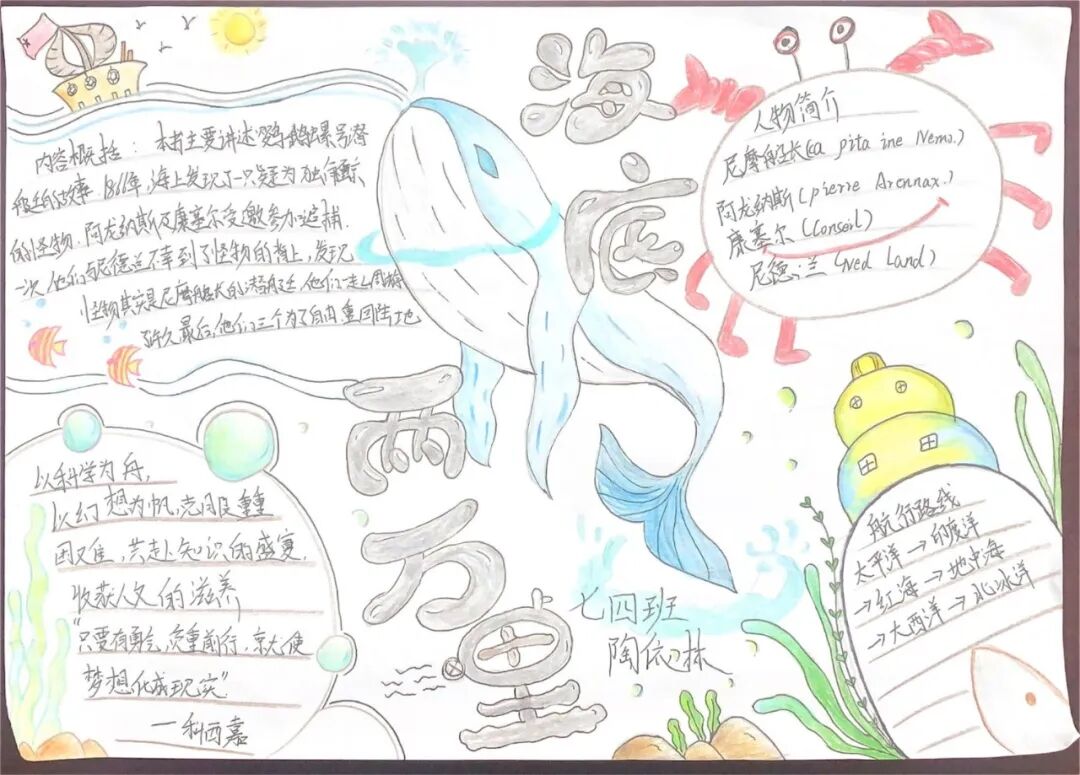 海底两万里
内容概括：本书主要讲述鹦鹉螺号潜
艇的故事 1866年，海上发现了一只疑为独角鲸
的怪物，阿龙纳斯及康塞尔受邀参加追捕
一次他们与尼德兰不幸到了怪物的背上，发现
怪物其实是尼摩船长的潜艇 他们一走上周游
许久 最后，他们三个为了自由重回陆地
人物简介
尼摩船长(ca pita ine Nemo.)
阿龙纳斯(pierre Aronnax.)
康塞尔(Conseil)
尼德·兰(Ned Land)
以科学为舟，
以幻想为帆，克服重重
困难，共赴知识的盛宴，
收获人文的滋养
"只要有勇气，负重前行，就会使
梦想化成现实"
—科西嘉
航行路线
太平洋→印度洋
→红海→地中海
→大西洋→北冰洋
七四班
陶依林